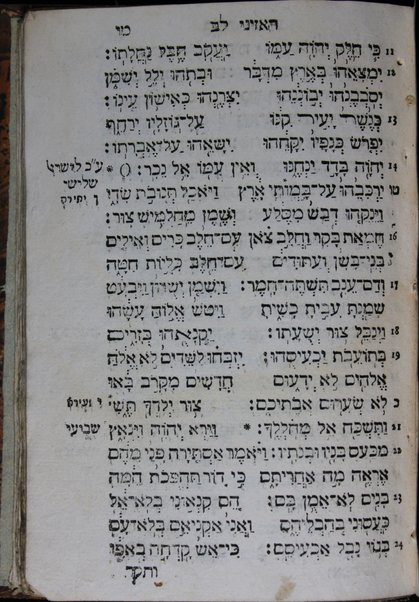 האזינו לב מו
11 כִּי חֵלֶק יְהֹוָה עַמּוֹ יַעֲקֹב חֶבֶל נַחֲלָתוֹ׃
12 יִמְצָאֵהוּ בְּאֶרֶץ מִדְבָּר וּבְתֹהוּ יְלֵל יְשִׁמֹן
יְסֹבְבֶנְהוּ יְבוֹנְנֵהוּ יִצְּרֶנְהוּ כְּאִישׁוֹן עֵינוֹ׃
13 כְּנֶשֶׁר יָעִיר קִנּוֹ עַל־גּוֹזָלָיו יְרַחֵף
יִפְרֹשׂ כְּנָפָיו יִקָּחֵהוּ יִשָּׂאֵהוּ עַל־אֶבְרָתוֹ׃
14 יְהֹוָה בָּדָד יַנְחֶנּוּ וְאֵין עִמּוֹ אֵל נֵכָר׃ ()
* ע״כ לישראל
שלישי
טו יַרְכִּבֵהוּ עַל־בָּמוֹתֵי אָרֶץ וַיֹּאכַל תְּנוּבֹת שָׂדָי
וַיֵּנִקֵהוּ דְבַשׁ מִסֶּלַע וְשֶׁמֶן מֵחַלְמִישׁ צוּר׃
16 חֶמְאַת בָּקָר וַחֲלֵב צֹאן עִם־חֵלֶב כָּרִים וְאֵילִים
בְּנֵי־בָשָׁן וְעַתּוּדִים עִם־חֵלֶב כִּלְיוֹת חִטָּה
17 וְדַם־עֵנָב תִּשְׁתֶּה־חָמֶר׃ וַיִּשְׁמַן יְשֻׁרוּן וַיִּבְעָט
שָׁמַנְתָּ עָבִיתָ כָּשִׂיתָ וַיִּטֹּשׁ אֱלוֹהַּ עָשָׂהוּ
וַיְנַבֵּל צוּר יְשֻׁעָתוֹ׃ יַקְנִאֻהוּ בְּזָרִים
18 בְּתוֹעֵבֹת יַכְעִיסֻהוּ׃ יִזְבְּחוּ לַשֵּׁדִים לֹא אֱלֹהַּ
אֱלֹהִים לֹא יְדָעוּם חֲדָשִׁים מִקָּרֹב בָּאוּ
כ לֹא שְׂעָרוּם אֲבֹתֵיכֶם׃ צוּר יְלָדְךָ תֶּשִׁי
י זעירא
21 וַתִּשְׁכַּח אֵל מְחֹלְלֶךָ׃ * וַיַּרְא יְהֹוָה וַיִּנְאָץ
שביעי
מִכַּעַס בָּנָיו וּבְנֹתָיו׃ וַיֹּאמֶר אַסְתִּירָה פָנַי מֵהֶם
אֶרְאֶה מָה אַחֲרִיתָם כִּי דוֹר תַּהְפֻּכֹת הֵמָּה
23 בָּנִים לֹא־אֵמֻן בָּם׃ הֵם קִנְאוּנִי בְלֹא־אֵל
כִּעֲסוּנִי בְּהַבְלֵיהֶם וַאֲנִי אַקְנִיאֵם בְּלֹא־עָם
24 בְּגוֹי נָבָל אַכְעִיסֵם׃ כִּי־אֵשׁ קָדְחָה בְאַפִּי
ותקד